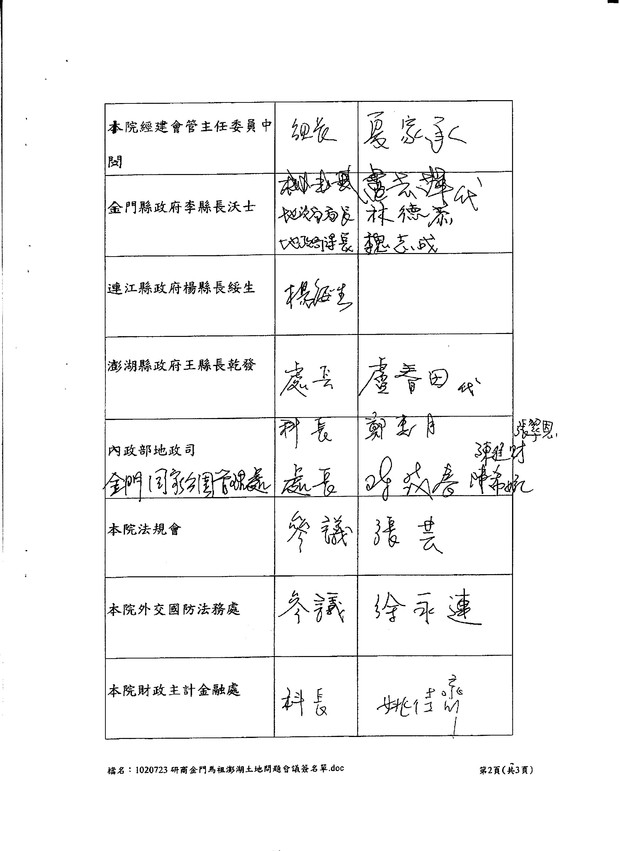 本院經建會管主任委員中
閔
組長
夏家承
金門縣政府李縣長沃士
代
地政局長
林德恭
地政課長
魏志成
連江縣政府楊縣長綏生
楊綏生
澎湖縣政府王縣長乾發
處長
盧春田代
內政部地政司
科長
鄭惠月
陳進財
金門國家公園管理處
處長
本院法規會
參議
張芸
本院外交國防法務處
參議
徐永連
本院財政主計金融處
科長
姚佳
檔名：1020723 研商金門馬祖澎湖土地問題會議簽名單.doc
第2頁(共3頁)